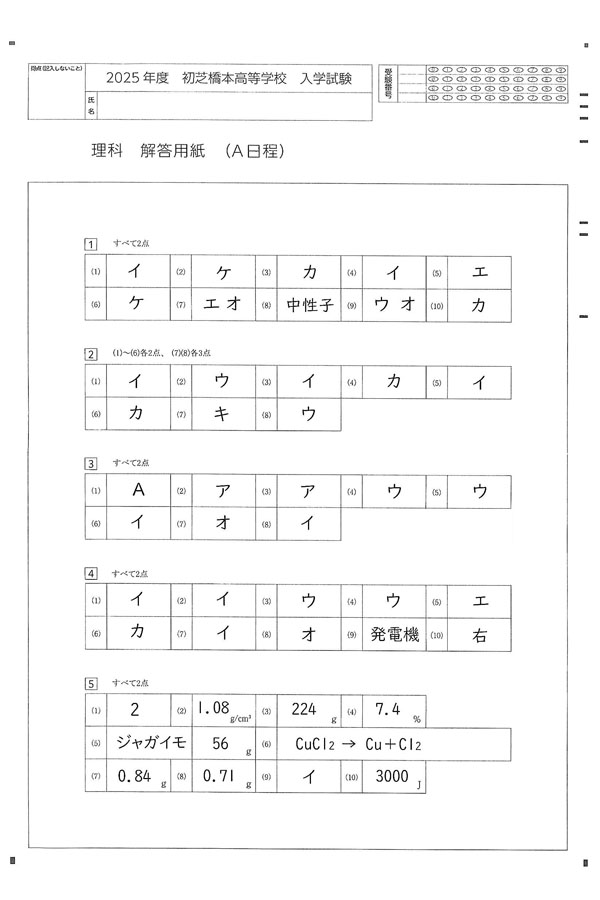 得点(記入しないこと)
2025年度 初芝橋本高等学校 入学試験
氏名
受験番号
理科 解答用紙 (A日程)
1 すべて2点
(1) イ (2) ケ (3) カ (4) イ (5) エ
(6) ケ (7) エ オ (8) 中性子 (9) ウ オ (10) カ
2 (1)~(6)各2点、(7)(8)各3点
(1) イ (2) ウ (3) イ (4) カ (5) イ
(6) カ (7) キ (8) ウ
3 すべて2点
(1) A (2) ア (3) ア (4) ウ (5) ウ
(6) イ (7) オ (8) イ
4 すべて2点
(1) イ (2) イ (3) ウ (4) ウ (5) エ
(6) カ (7) イ (8) オ (9) 発電機 (10) 右
5 すべて2点
(1) 2 (2) 1.08 g/cm³ (3) 224 g (4) 7.4 %
(5) ジャガイモ 56 g (6) CuCl2 → Cu+Cl2
(7) 0.84 g (8) 0.71 g (9) イ (10) 3000 J